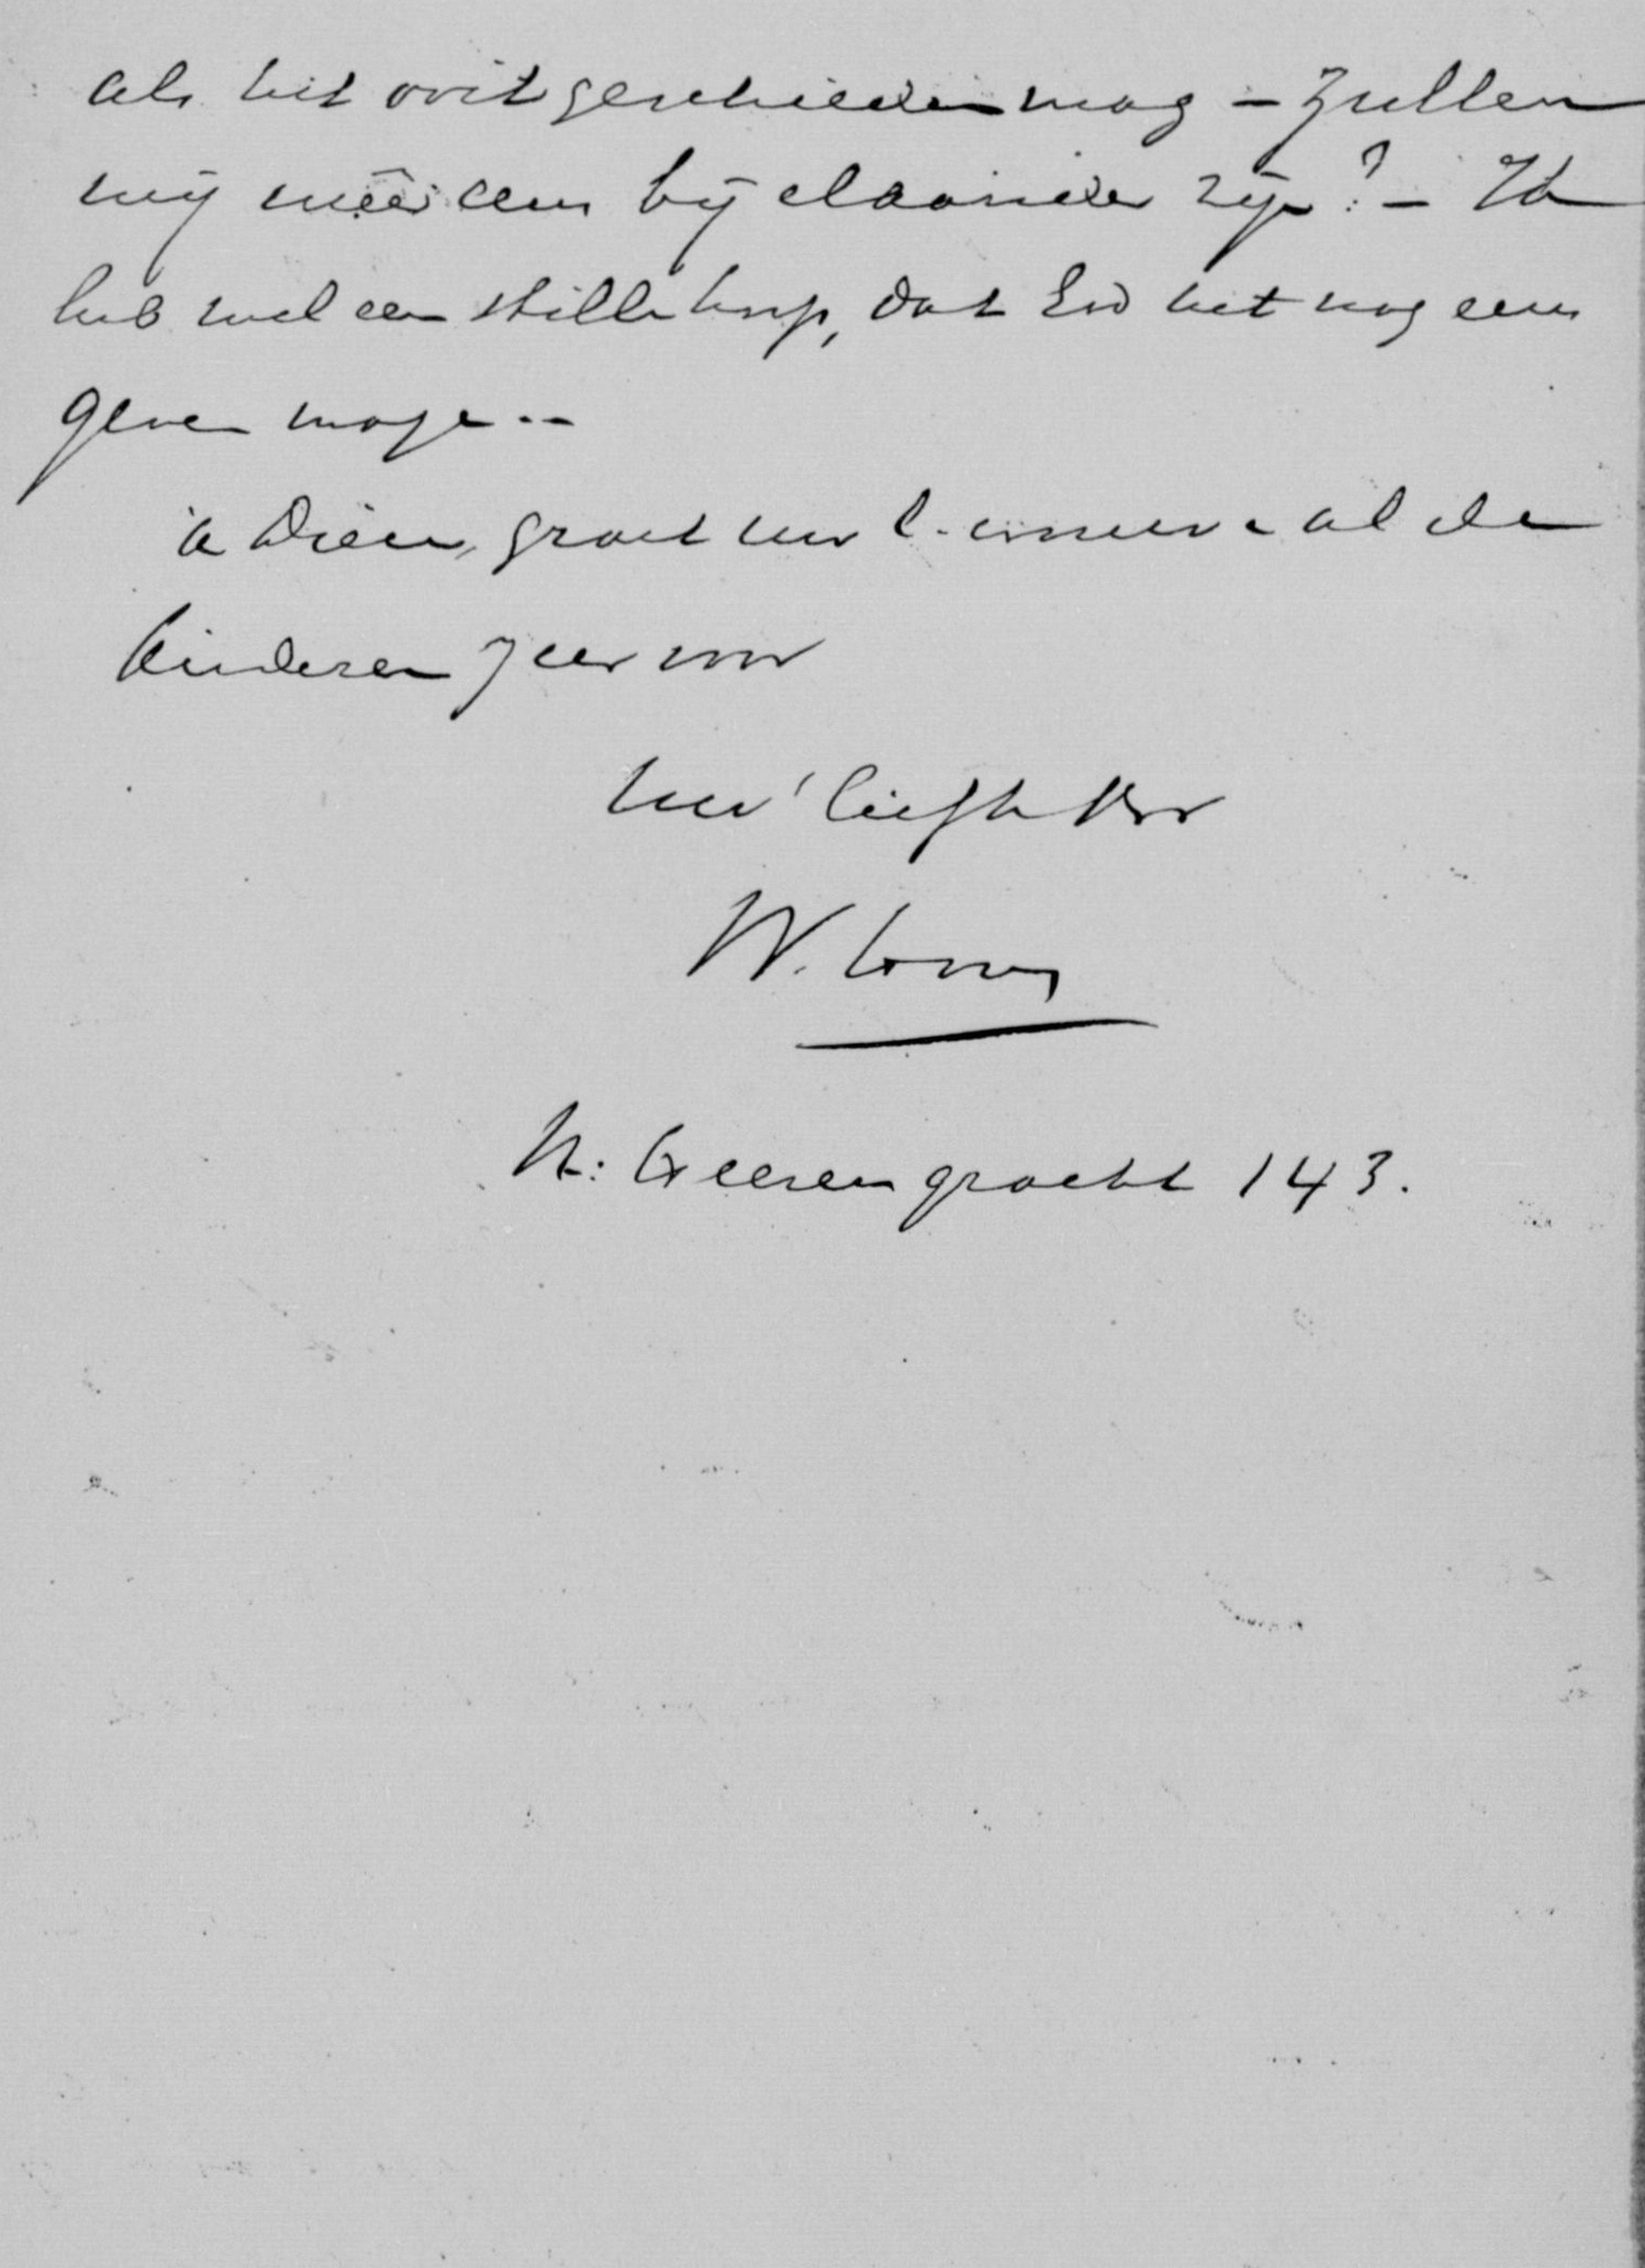 als het ooit geschieden mag – zullen
wij weêr eens bij elkander zijn? – Ik
heb wel een stille hoop, dat God het nog eens
geven moge..
à Dieu, groet uw l. vrouw & al de
kinderen zeer van
uw' liefh. br
W.
N: Heerengracht 143.